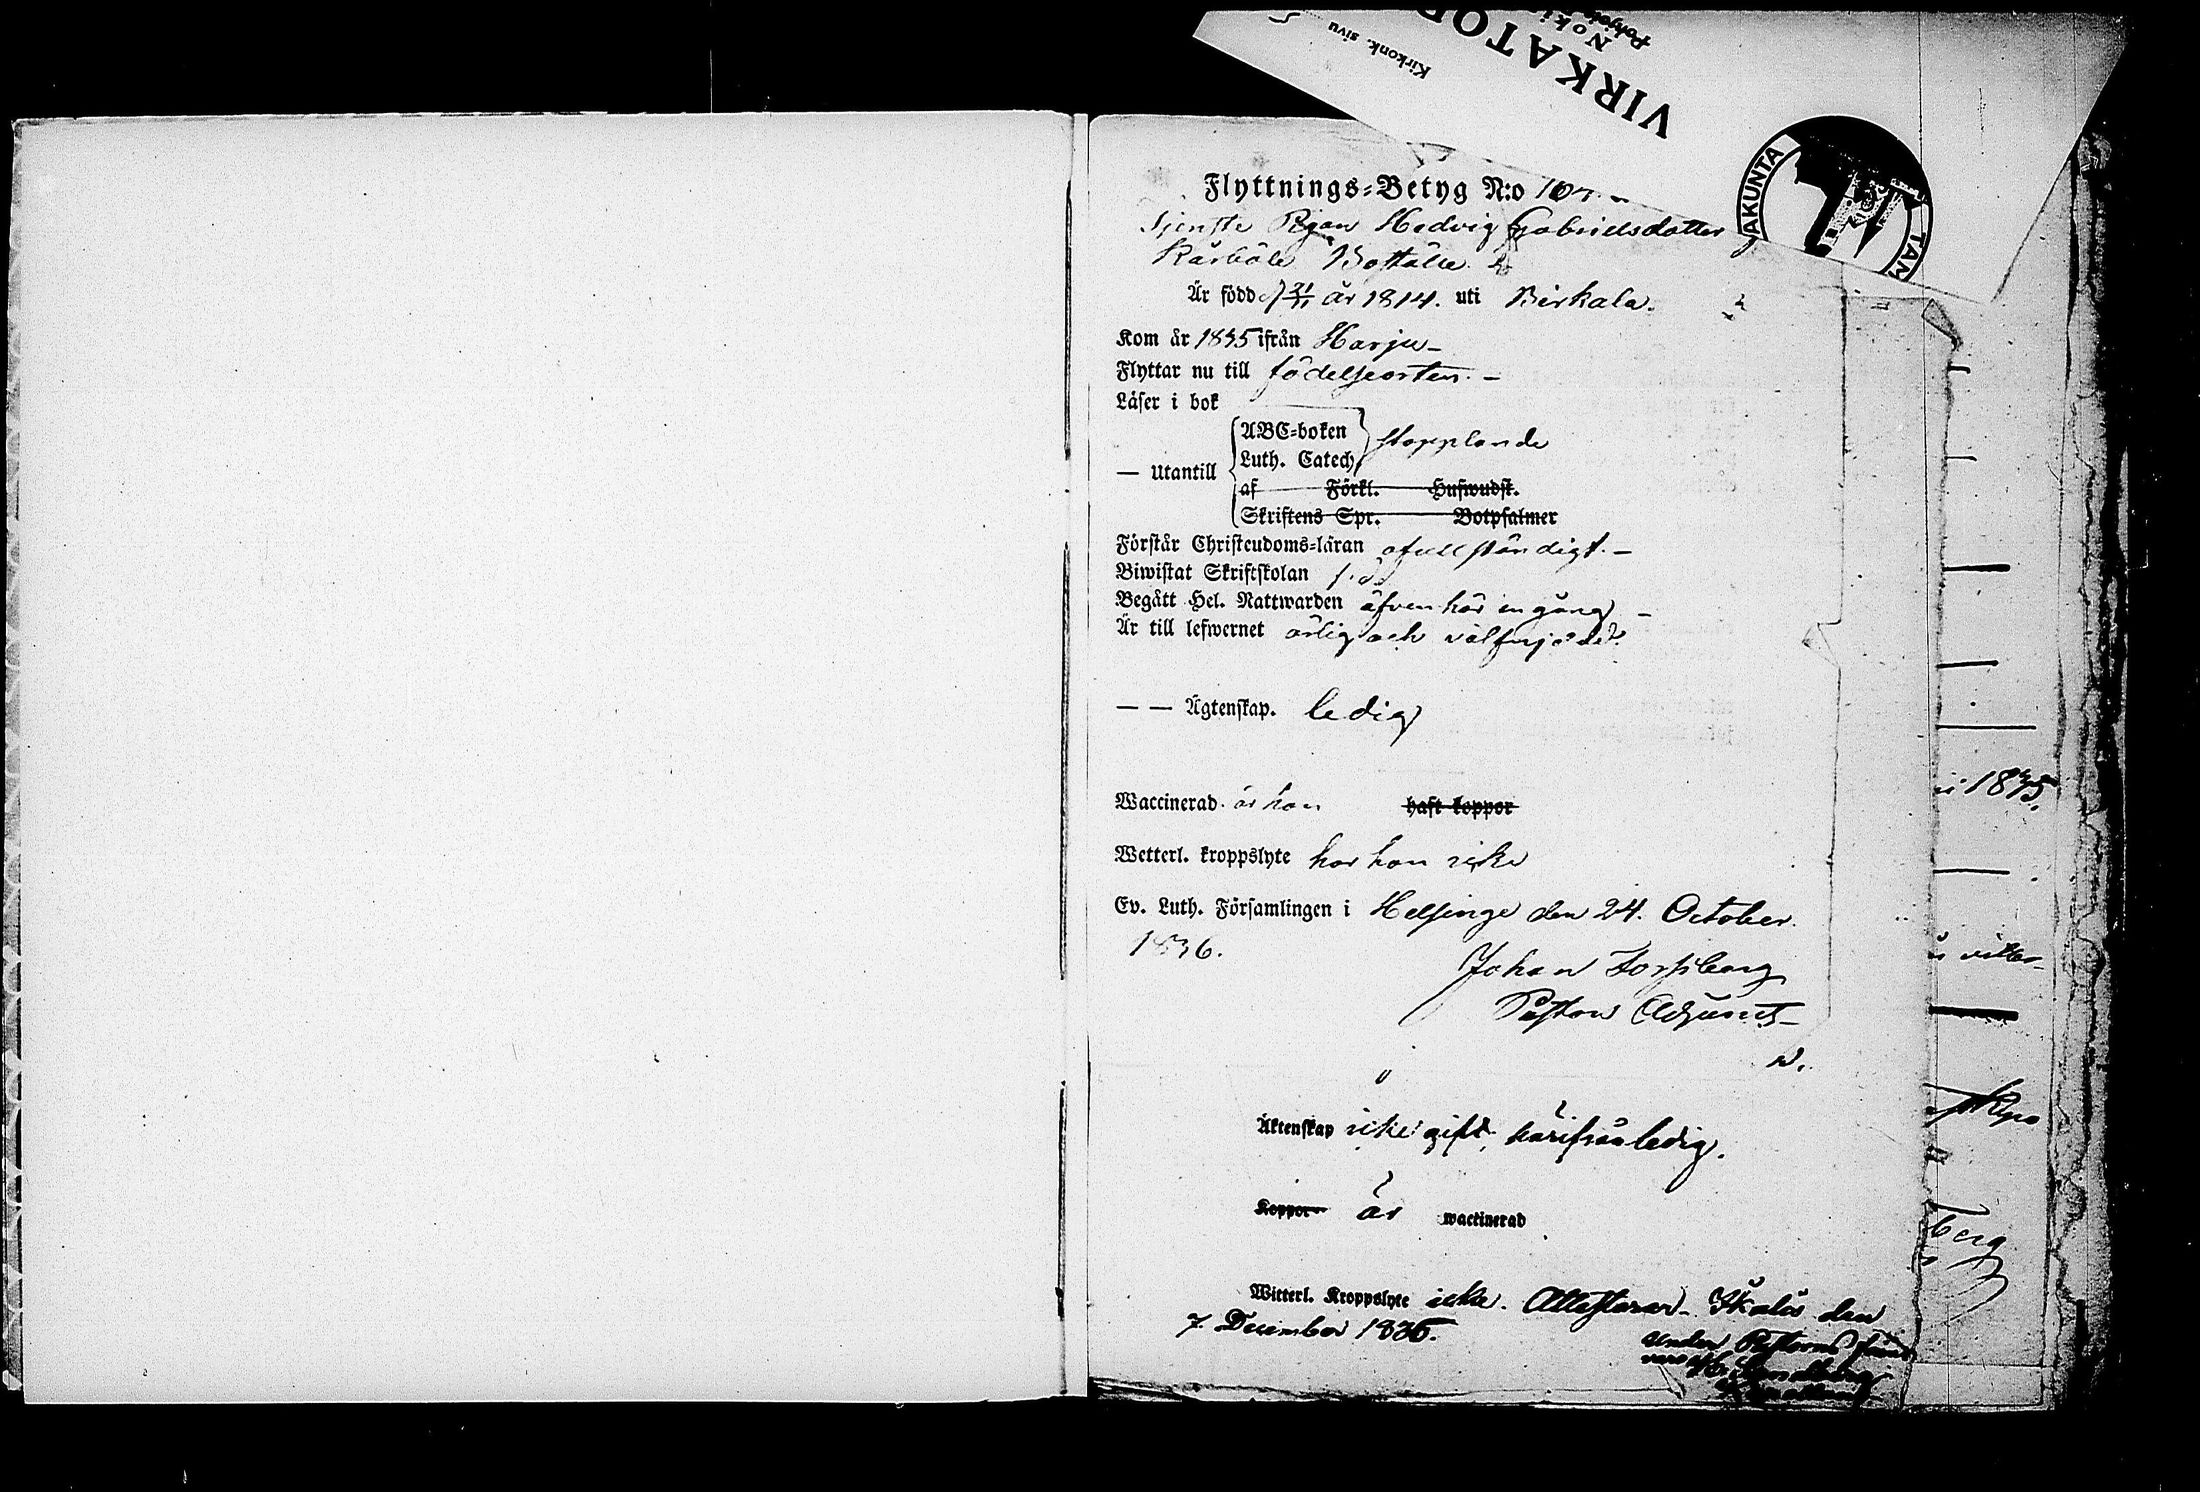 Kirkonk. sivu
VIRKATOD
Noki
Pohjois
AKUNTA
TAM
Flyttnings-Betyg N:o 107.
Tjenste Pigan Hedvig Gabrielsdotter
Kårböle Boställe
Är född d 21/11 år 1814. uti Birkala.
Kom år 1835 ifrån Harju –
Flyttar nu till födelseorten. –
Läser i bok
ABC-boken
Luth. Catech stapplande
— Utantill
af Förkl. Huswudst.
Skriftens Spr. Botpsalmer
Förstår Christendoms-läran ofullständigt. –
Biwistat Skriftskolan
Begått Hel. Nattwarden äfven här en gång –
Är till lefwernet ärlig och välfrejdad.
— — Ägtenskap. ledig
Waccinerad är hon haft koppor
Wetterl. kroppslyte har hon icke
Ev. Luth. Församlingen i Helsinge den 24. October.
1836.
Johan Forssberg
Pastors Adjunct
Äktenskap icke gift, härifrån ledig.
Koppor är waccinerad
Witterl. Kroppslyte icke. Attesterar. Ikalis den
7 December 1835.
under Pastorns från-
varo
i 1835.
berg